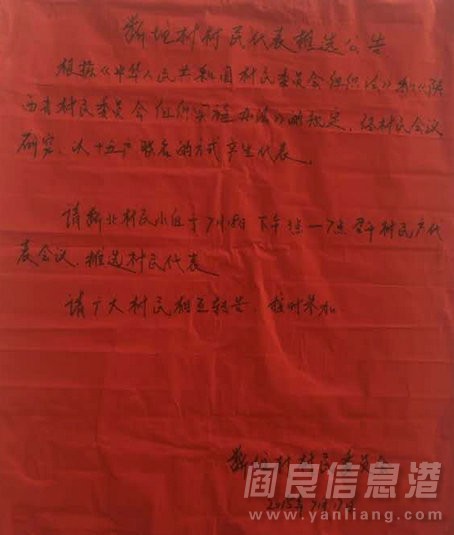 村村民代表推选公告
根据《中华人民共和国村民委员会组织法》和《陕
西省村民委员会组织实施办法》的规定,经村民会议
研究,以十五户联名的方式产生代表。
请 北村民小组于7月18日下午 点一7点召开村民户代
表会议,推选村民代表
请广大村民相互转告,按时参加
村村民委员会
2015年7月17日
阎良信息港
www.yanliang.com